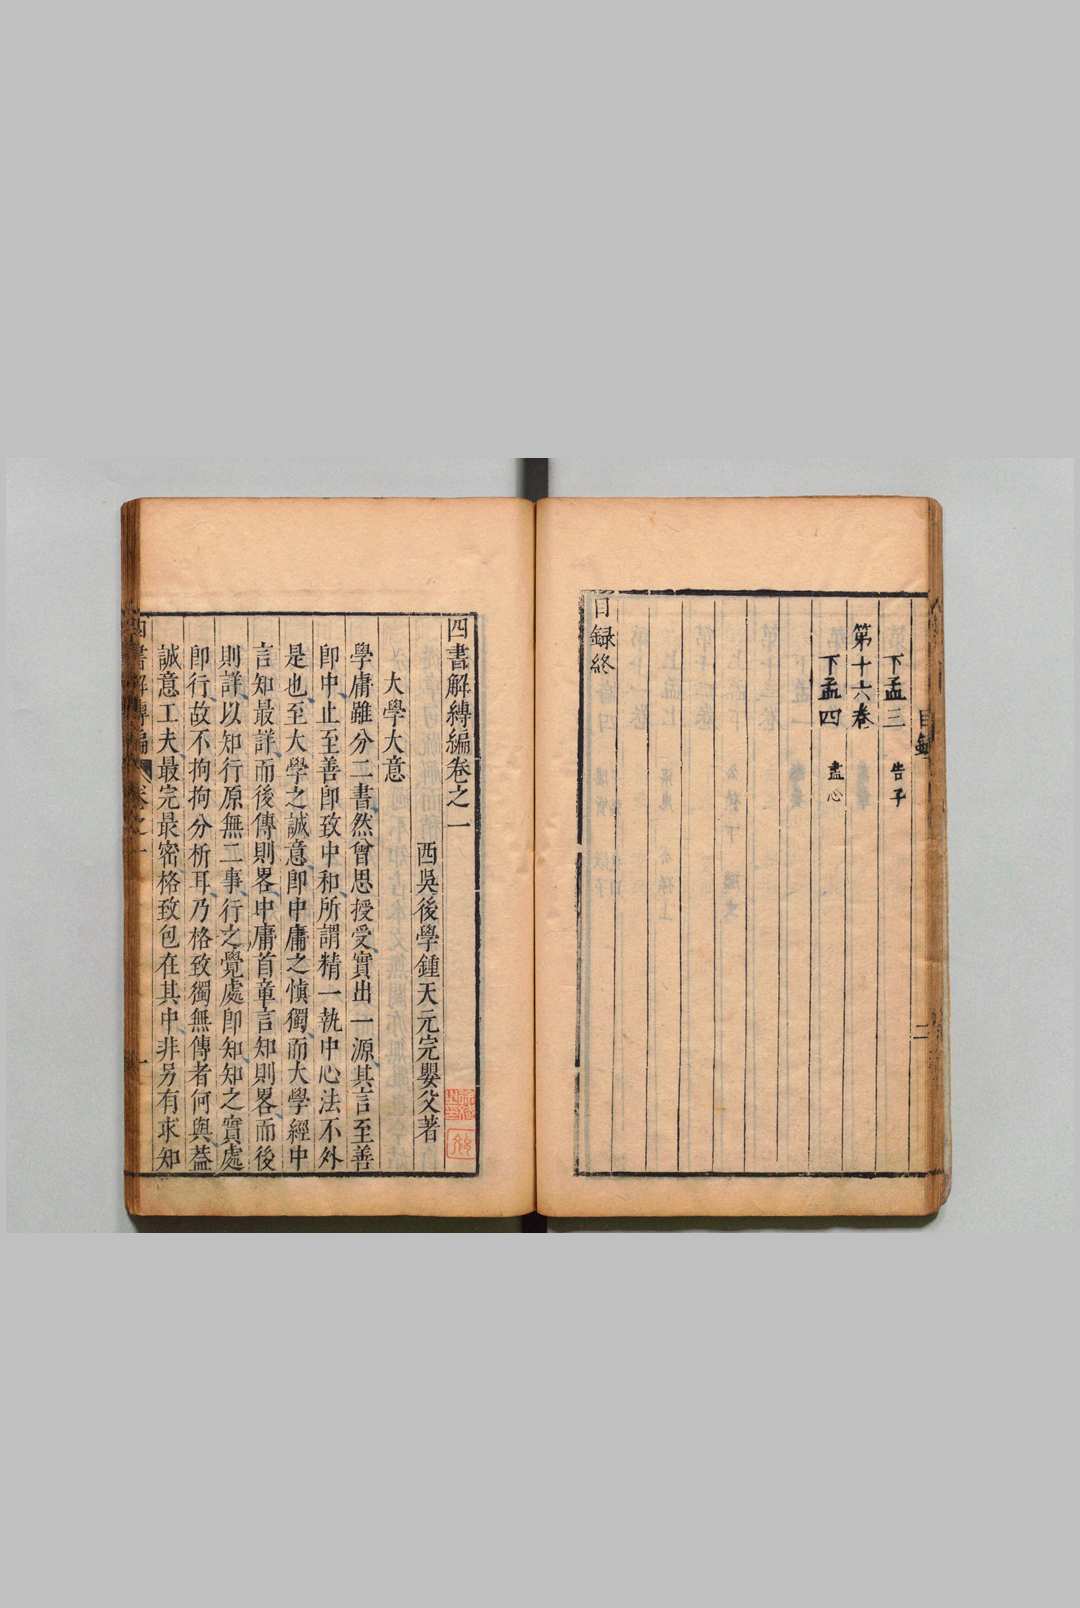 目錄
下孟三 告子
第十六卷
下孟四 盡心
目録終
二
四書解縛編卷之一
西吳後學鍾天元完嬰父著
大學大意
學庸雖分二書然曾思授受實出一源其言至善
卽中止至善卽致中和所謂精一執中心法不外
是也至大學之誠意卽中庸之愼獨而大學經中
言知最詳而後傳則畧中庸首章言知則畧而後
則詳以知行原無二事行之覺處卽知知之實處
卽行故不拘拘分析耳乃格致獨無傳者何與葢
誠意工夫最完最密格致包在其中非另有求知
四書解縛編 卷之一 一